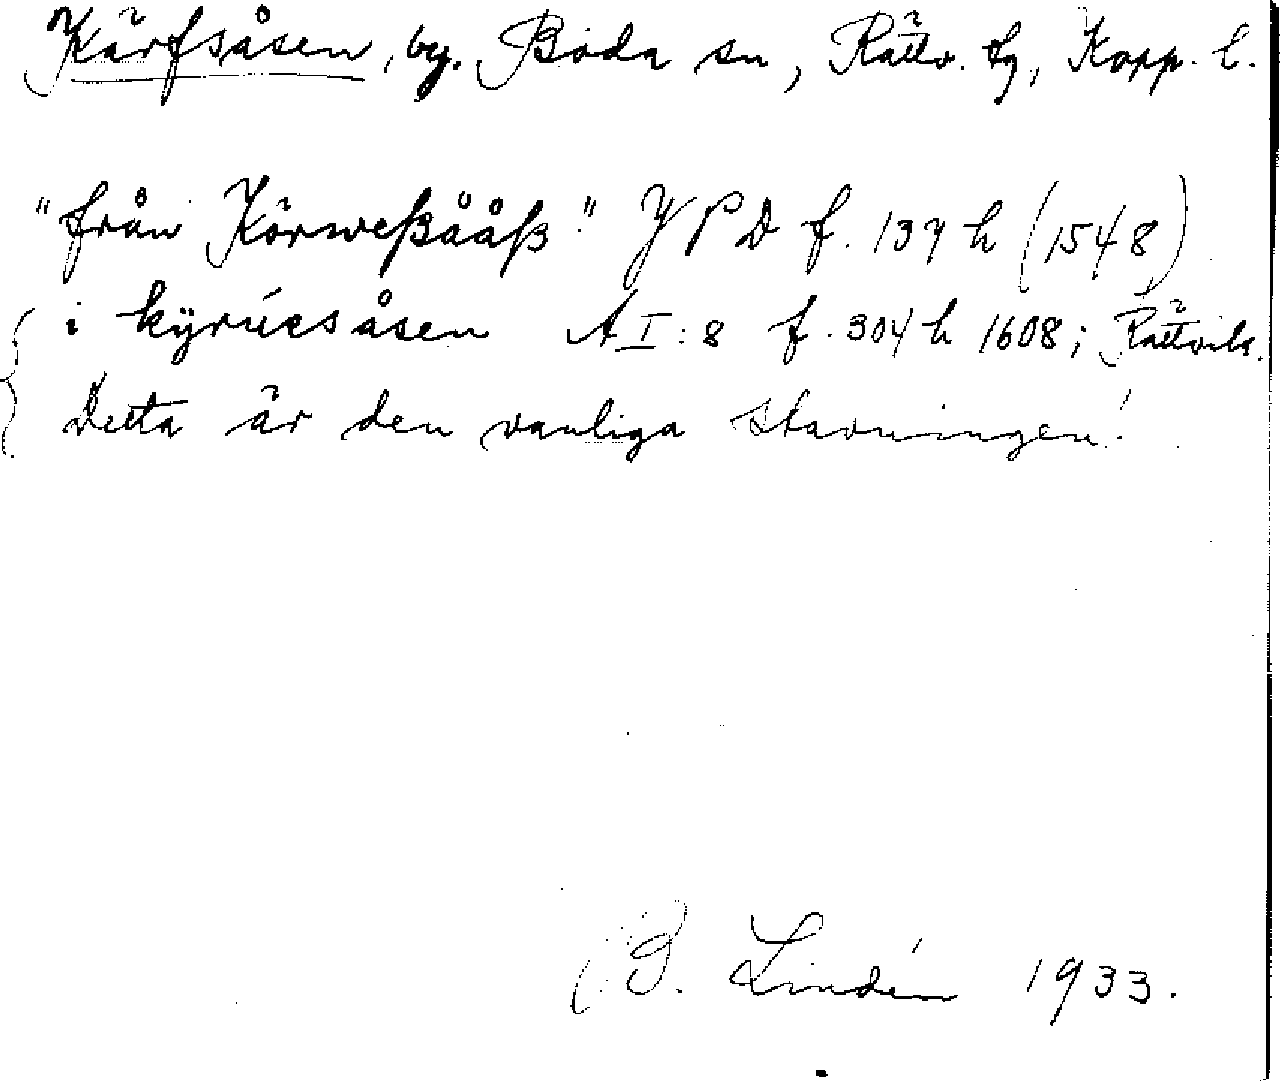 Kärfsåsen, by. Boda sn, Rättv. tg, Kopp. l.
"från Körweßååß." YPD f. 139 h (1548)
i kÿrúesåsen A I:8 f. 304 h 1608; Rättvik.
Detta är den vanliga stavningen!
B. Lindén 1933.